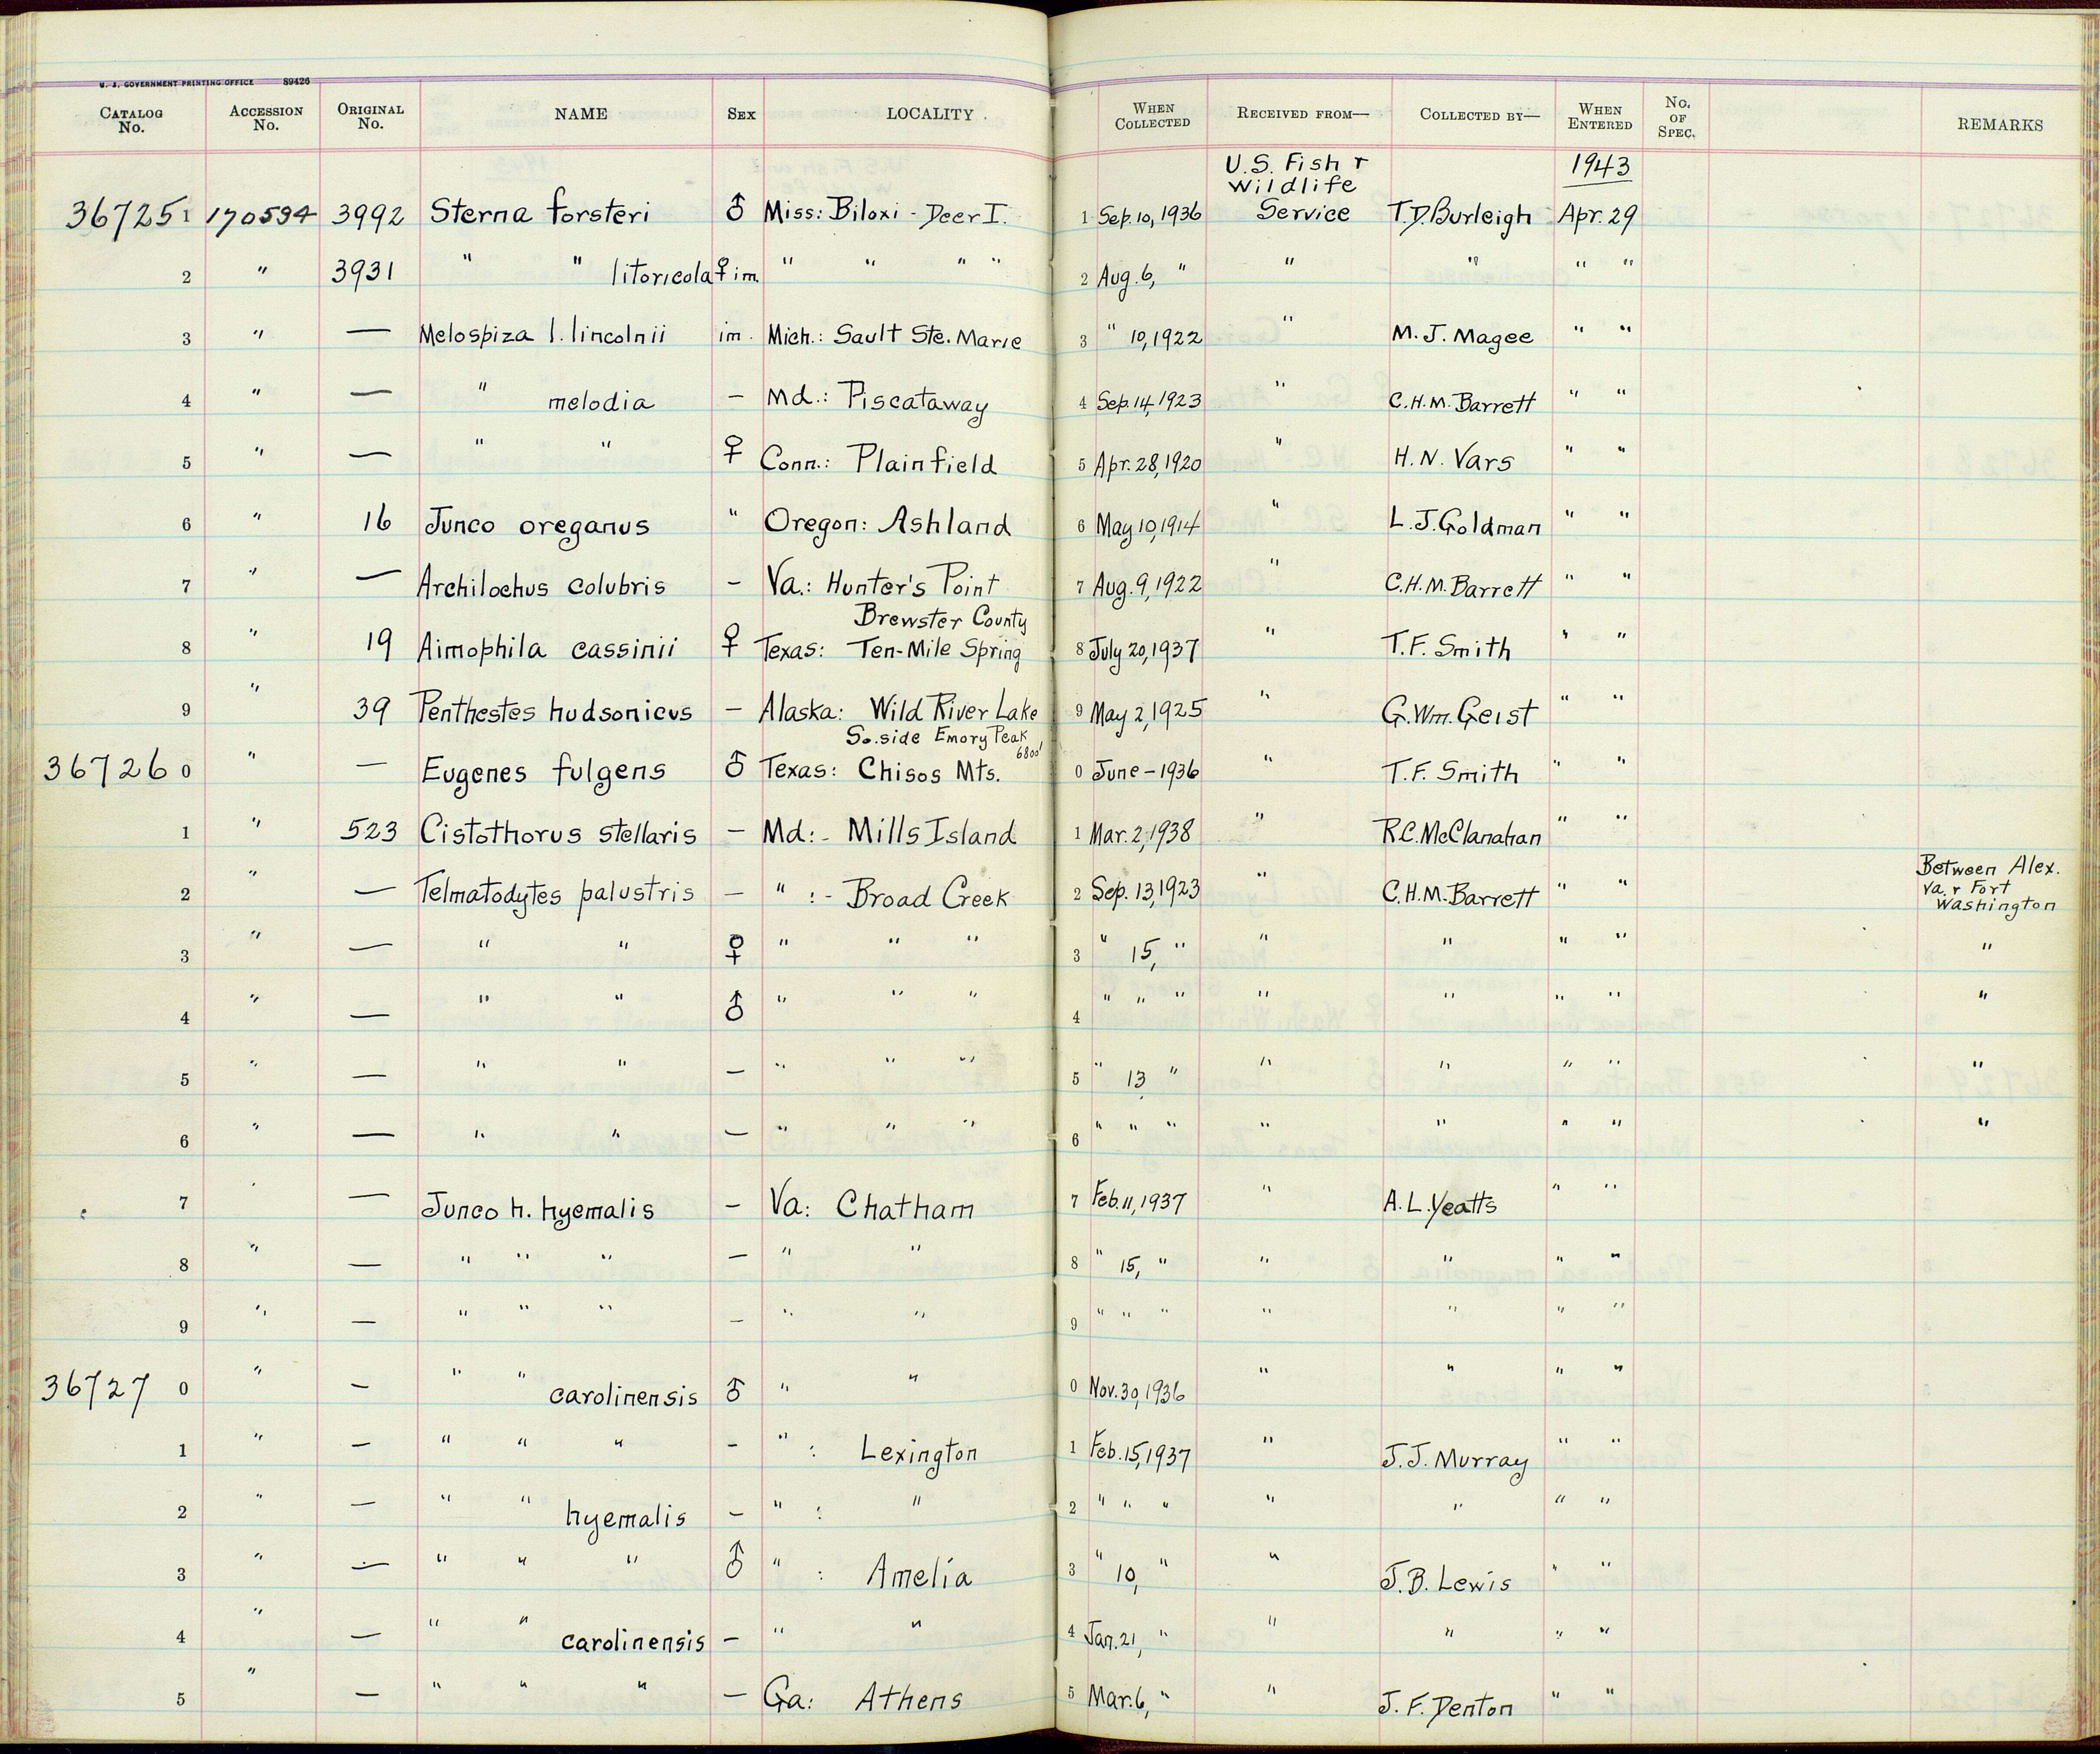 U. S. GOVERNMENT PRINTING OFFICE 89426
CATALOG No. ACCESSION No. ORIGINAL No. NAME SEX LOCALITY WHEN COLLECTED RECEIVED FROM— COLLECTED BY— WHEN ENTERED No. OF SPEC. REMARKS
U.S. Fish & 1943
Wildlife
36725 1 170594 3992 Sterna forsteri ♂ Miss: Biloxi - Deer I. 1 Sep. 10, 1936 Service T.D. Burleigh Apr. 29
2 " 3931 " " litoricola ♀ im. " " " " 2 Aug. 6, " " " " "
3 " — Melospiza l. lincolnii im. Mich.: Sault Ste. Marie 3 " 10, 1922 " M. J. Magee " "
4 " — " melodia — Md.: Piscataway 4 Sep. 14, 1923 " C.H.M. Barrett " "
5 " — " " ♀ Conn.: Plainfield 5 Apr. 28, 1920 " H. N. Vars " "
6 " 16 Junco oreganus " Oregon: Ashland 6 May 10, 1914 " L. J. Goldman " "
7 " — Archilochus colubris — Va.: Hunter's Point 7 Aug. 9, 1922 " C.H.M. Barrett " "
Brewster County
8 " 19 Aimophila cassinii ♀ Texas: Ten-Mile Spring 8 July 20, 1937 " T. F. Smith " "
9 " 39 Penthestes hudsonicus — Alaska: Wild River Lake 9 May 2, 1925 " G. Wm. Geist " "
So. side Emory Peak
6800'
36726 0 " — Eugenes fulgens ♂ Texas: Chisos Mts. 0 June — 1936 " T. F. Smith " "
1 " 523 Cistothorus stellaris — Md: - Mills Island 1 Mar. 2, 1938 " R.C. McClanahan " "
Between Alex.
2 " — Telmatodytes palustris — " : - Broad Creek 2 Sep. 13, 1923 " C.H.M. Barrett " " Va. & Fort
Washington
3 " — " " ♀ " " " 3 " 15, " " " " " "
4 " — " " ♂ " " " 4 " " " " " " " "
5 " — " " — " " " 5 " 13, " " " " " "
6 " — " " — " " " 6 " " " " " " " "
7 " — Junco h. hyemalis — Va: Chatham 7 Feb. 11, 1937 " A. L. Yeatts " "
8 " — " " " — " " 8 " 15, " " " " "
9 " — " " " — " " 9 " " " " " " "
36727 0 " — " " carolinensis ♂ " " 0 Nov. 30, 1936 " " " "
1 " — " " " — " : Lexington 1 Feb. 15, 1937 " J. J. Murray " "
2 " — " " hyemalis — " : " 2 " " " " " " "
3 " — " " " ♂ " : Amelia 3 " 10, " " J. B. Lewis " "
4 " — " " carolinensis — " " 4 Jan. 21, " " " " "
5 " — " " " — Ga: Athens 5 Mar. 6, " " J. F. Denton " "